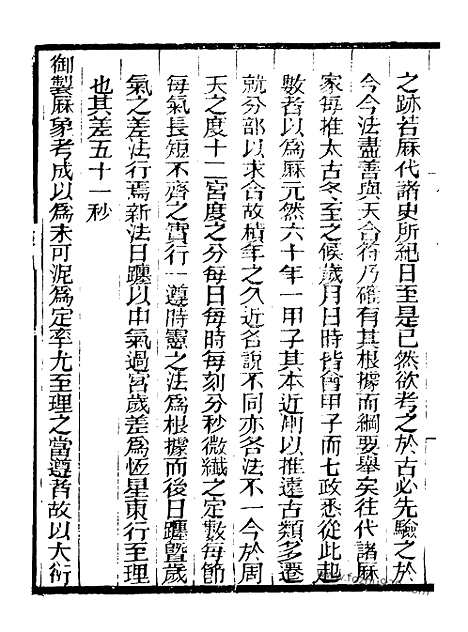 之跡若厤代諸史所紀日至是已然欲考之於古必先驗之於
今今法盡善與天合符乃確有其根據而綱要舉矣往代諸厤
家每推太古冬至之候歲月日時皆會甲子而七政悉從此起
數者以為厤元然六十年一甲子其本近剏以推遠古類多遷
就分部以求合故積年之久近各說不同亦各法不一今於周
天之度十二宮度之分每日每時每刻分秒微纖之定數每節
每氣長短不齊之實行一遵時憲之法為根據而後日躔曁歲
氣之差法行焉新法日躔以中氣過宮歲差為恆星東行至理
也其差五十一秒
御製厤象考成以為未可泥為定率尤至理之當遵者故以大衍